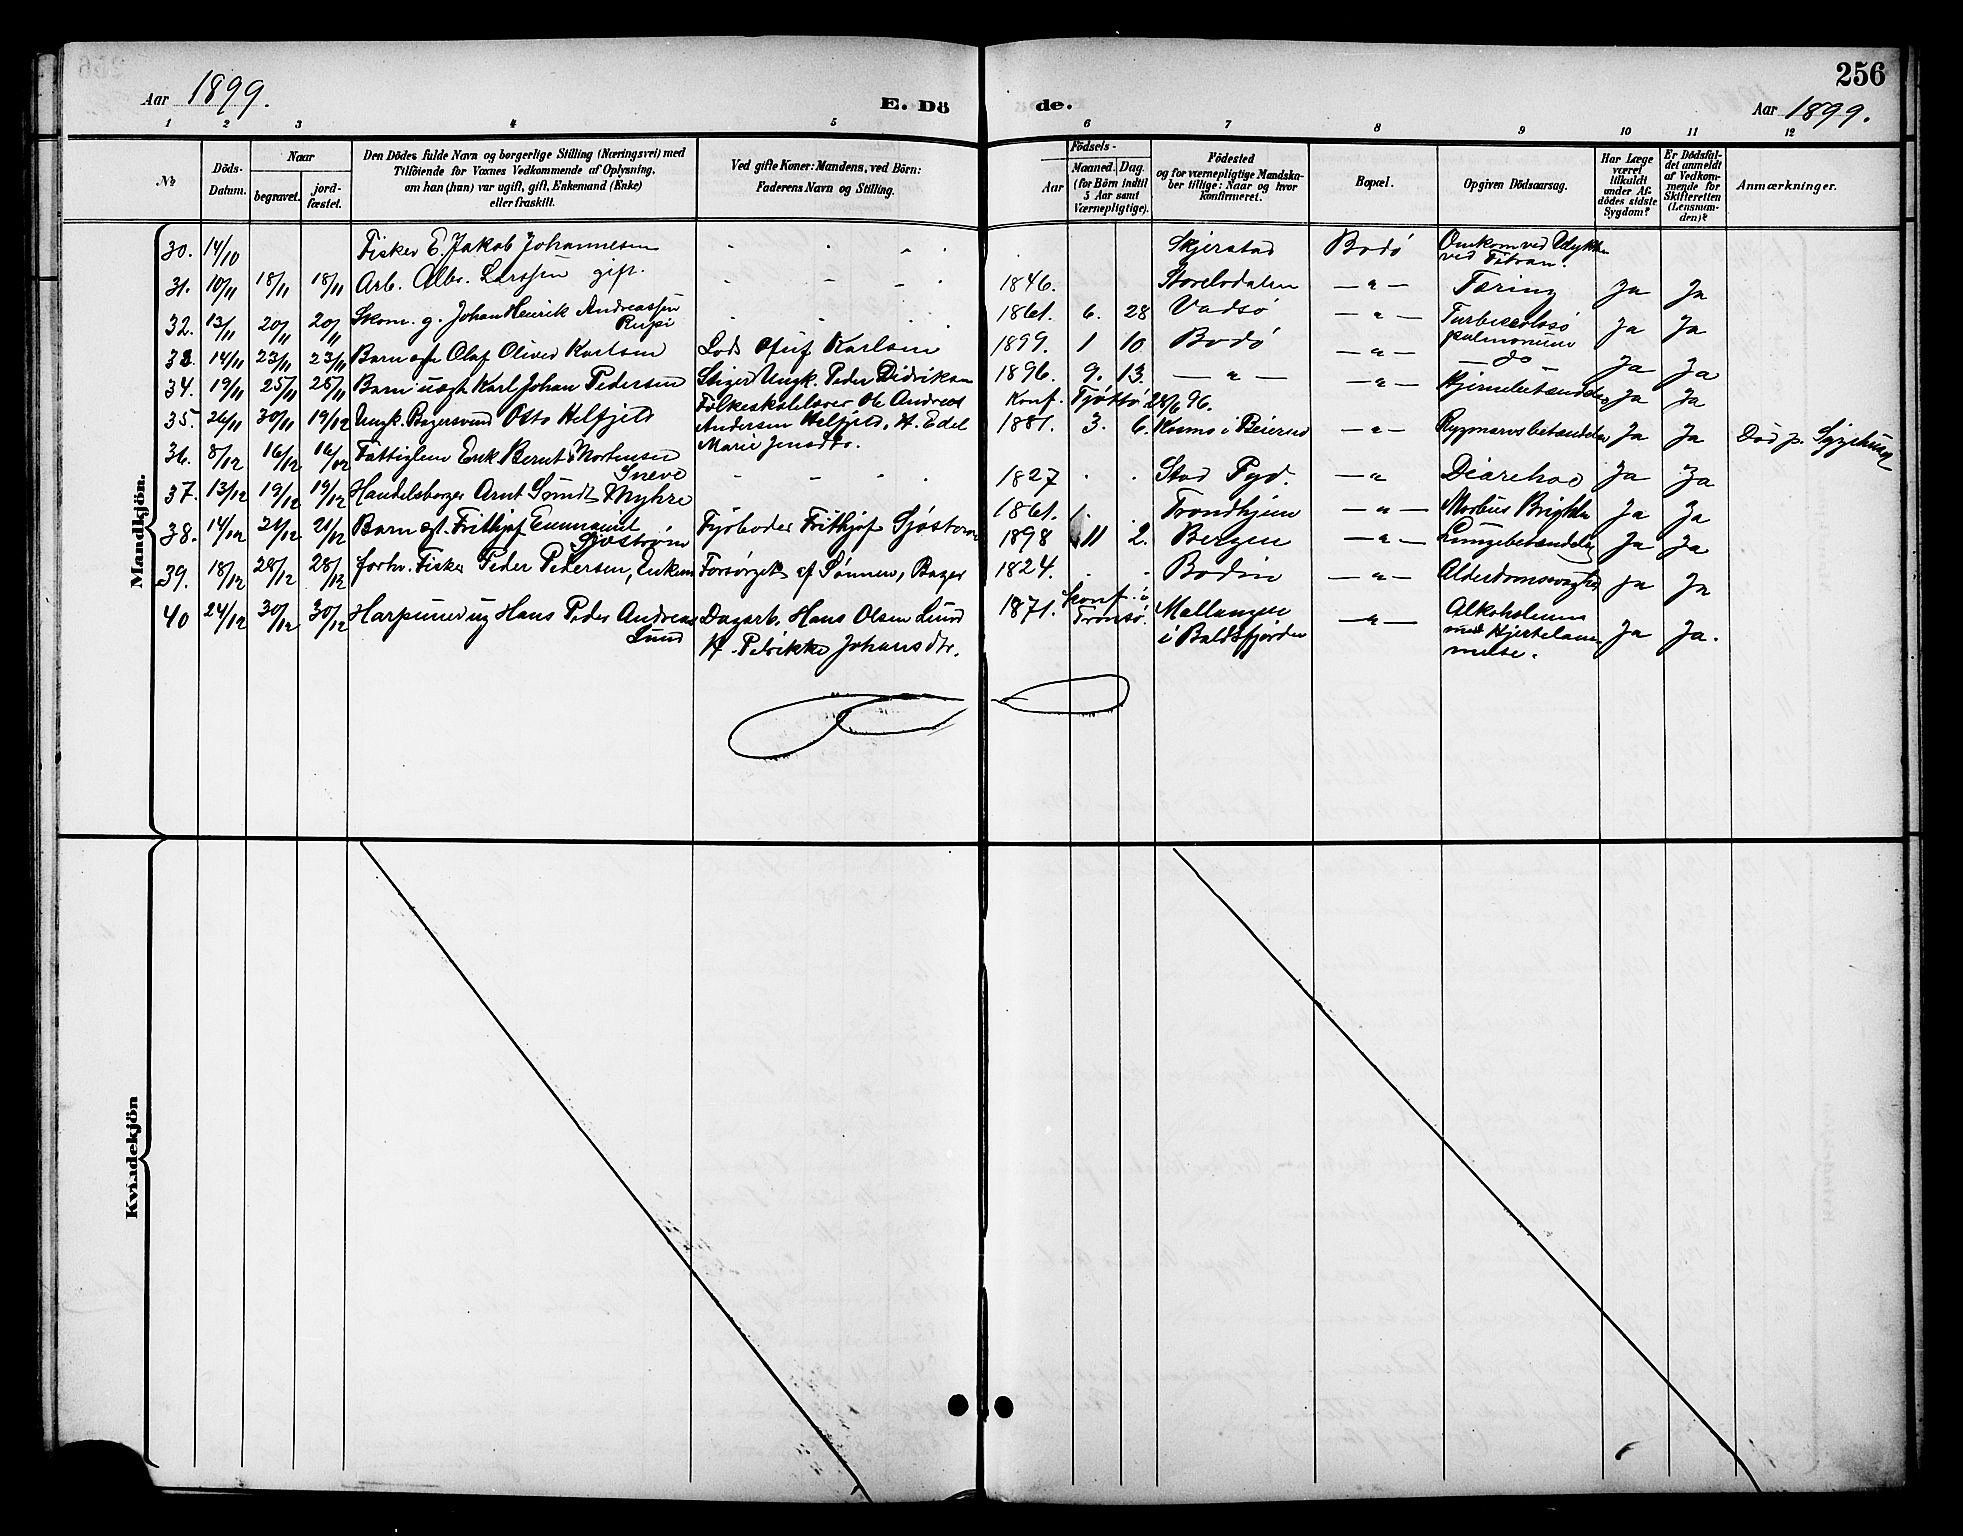 256
Aar 1899.
E. Dö de.
Aar 1899.
1 2 3 4 5 6 7 8 9 10 11 12
No.
Döds-Datum.
Naar
begravet.
jord-fæstet.
Den Dödes fulde Navn og borgerlige Stilling (Næringsvei) med
Tilföiende for Voxnes Vedkommende af Oplysning,
om han (hun) var ugift, gift, Enkemand (Enke)
eller fraskilt.
Ved gifte Koner: Mandens, ved Börn:
Faderens Navn og Stilling.
Födsels-
Aar
Maaned. Dag.
(for Börn indtil
5 Aar samt
Værnepligtige).
Födested
og for værnepligtige Mandska-
ber tillige: Naar og hvor
konfirmeret.
Bopæl.
Opgiven Dödsaarsag.
Har Læge
været
tilkaldt
under Af-
dödes sidste
Sygdom?
Er Dödsfal-
det anmeldt
af Vedkom-
mende for
Skifteretten
(Lensman-
den)?
Anmærkninger.
Mandkjön.
30. 14/10 Fisker E. Jakob Johannesen - - - - Skjerstad Bodö Omkom ved
ved Titran.
31. 10/11 18/11 18/11 Arb. Albr. Larssen gift. - - - - 1846. — " — Tæring Ja Ja
32. 13/11 20/11 20/11 Skom. g. Johan Henrik Andreassen 1861. 6. 28 Vadsö — " — Ja Ja
pulmonum
33. 14/11 23/11 23/11 Barn Olaf Oliver Karlsen Lods Karlsen 1899. 1 10 Bodö — " — do Ja Ja
34. 19/11 25/11 25/11 Barn uægt Karl Johan Pedersen Ungk. Peder Didriksen 1896. 9. 13. — " — — " — Hjernebetændelse Ja Ja
35. 26/11 30/11 19/12 Ungk. Bagersvend Otto Kelfjeld Folkeskolelærer Ole Andreas
Andersen Kelfjeld, H. Edel
Marie Jensdtr.
Konf. Tjöttö 28/6 96.
1881. 3. 6. i Beiern — " — Rygmarvsbetændelse Ja Ja Död p. Sygehuset
36. 8/12 16/12 16/12 Fattiglem Enk. Bernt Mortensen
- - - - 1827 . . Stad Pgd. — " Ja Ja
37. 13/12 19/12 19/12 Handelsborger Arnt Myhre 1861. . . Trondhjem — " — Morbus Brightii Ja Ja
38. 14/12 21/12 21/12 Barn ægt. Frithjof Emmanuel
Sjöström
Fyrböder Frithjof Sjöström 1898 11 2. Bergen — " — Lungebetændelse Ja Ja
39. 18/12 28/12 28/12 forhv. Fisker Peder Pedersen, Enkem. Forsörget af Sönnen, Bager 1824. . . Bodin — " — Alderdomssvaghed Ja Ja
40 24/12 30/12 30/12 Harpuner ug Hans Peder Andreas
Lund
Dagarb. Hans Olsen Lund
H. Johansdtr.
1871. Konf. i
Tromsö.
Mallangen
i Baldsfjorden
— " — Alkoholisme
med Hjertelam-
melse.
Ja Ja.
Kvindekjön